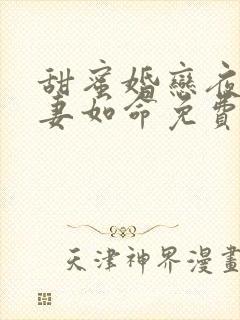 甜蜜婚戀夜
妻如命免費
天津神界漫畫